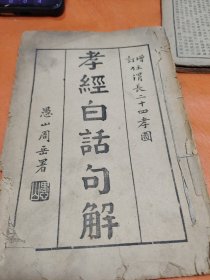 增訂任渭長二十四孝圖
孝經白話句解
愚山周岳署